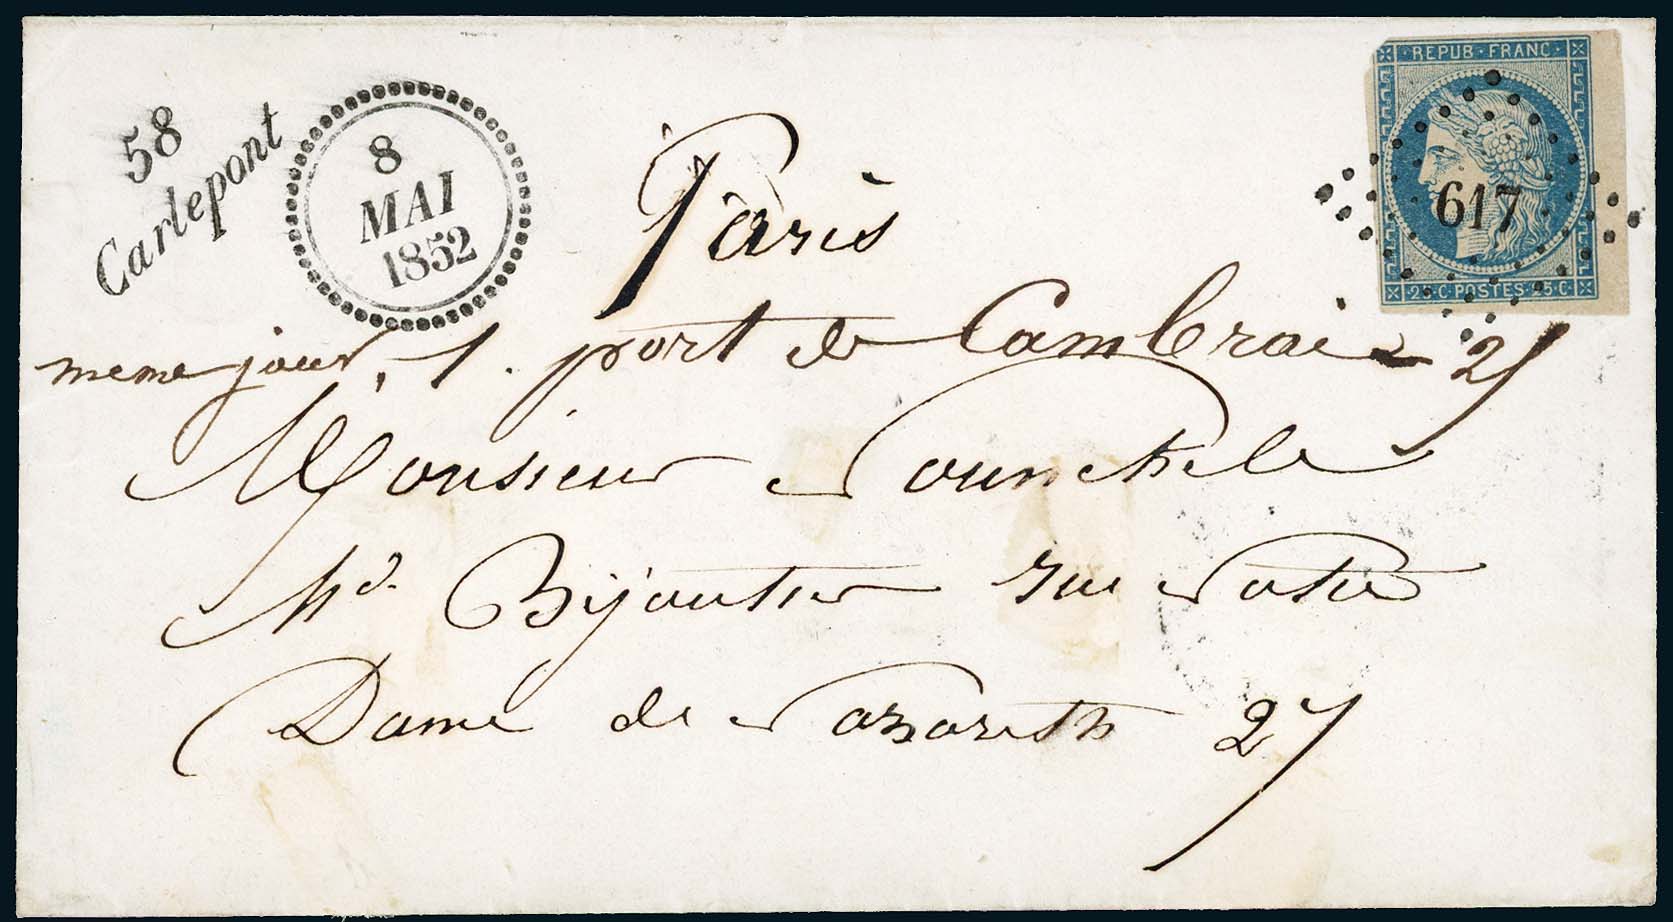 58
Carlepont
8
MAI
1852
REPUB · FRANC
617
25 · C · POSTES · 25 · C ·
Paris
meme jour, 1. port de Cambrai 25
Monsieur
Md. Bijoutier rue Notre
Dame de Nazareth 27